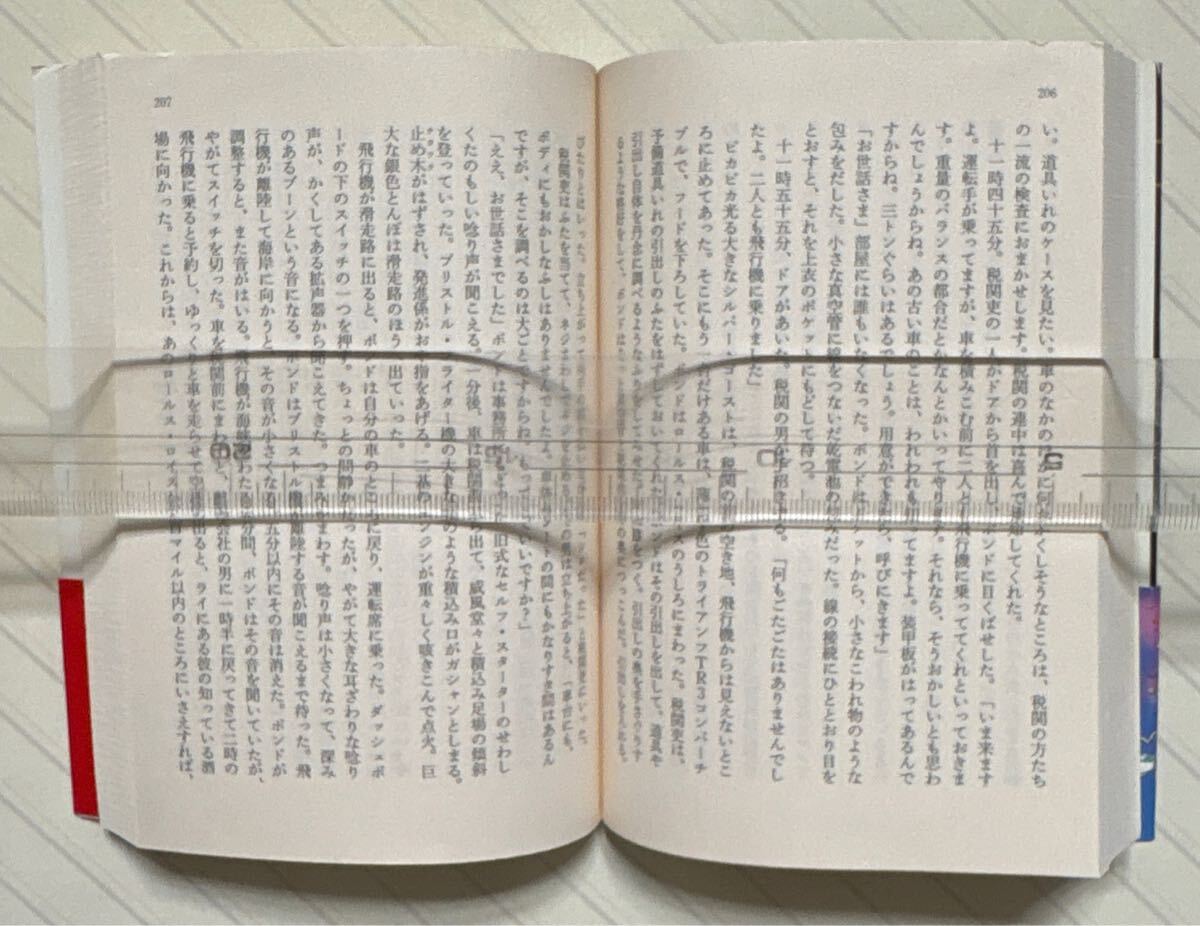 206
い。道具いれのケースを見たい。車のなかのほかに何かかくしそうなところは、税関の方たち
の一流の検査におまかせします。税関の連中は喜んで承知してくれた。
十一時四十五分。税関吏の一人がドアから首を出し、ボンドに目くばせした。「いま来ます
よ。運転手が乗ってますが、車を積みこむ前に二人とも飛行機に乗っててくれといっておきま
す。重量のバランスの都合だとかなんとかいってやります。それなら、そうおかしいとも思わ
んでしょうからね。あの古い車のことは、われわれも知ってますよ。装甲板がはってあるんで
すからね。三トンぐらいはあるでしょう。用意ができたら、呼びにきます」
「お世話さま」部屋には誰もいなくなった。ボンドはポケットから、小さなこわれ物のような
包みをだした。小さな真空管に線をつないだ乾電池の包みだった。線の接続にひととおり目を
とおすと、それを上衣のポケットにもどして待つ。
十一時五十五分、ドアがあいた。税関の男が手招きする。「何もごたごたはありませんでし
たよ。二人とも飛行機に乗りました」
ピカピカ光る大きなシルバー・ゴーストは、税関の 空き地、飛行機からは見えないとこ
ろに止めてあった。そこにもう一台だけある車は、薄 色のトライアンフTR3コンバーチ
ブルで、フードを下ろしていた。ボンドはロールス・ロイスのうしろにまわった。税関吏は、
予備道具いれの引出しのふたをはずしておいてくれた。ボンドはその引出しを出して、道具や
引出し自体を丹念に調べるようなふりをして
207
税関吏はふたを当てて、ネジ
ボディにもおかしなふしはありませんでしたよ。 の間にもかなりすき間はあるん
ですが、そこを調べるのは大ごとですからね。もっていっていいですか？」
「ええ。お世話さまでした」ボンドは事務所 旧式なセルフ・スターターのせわし
くたのもしい唸り声が聞こえる。一分後、車は税関 出て、威風堂々と積込み足場の傾斜
を登っていった。ブリストル・フライター機の大きな のような積込み口がガシャンとしまる。
止め木がはずされ、発進係がおや指をあげる。二基のエンジンが重々しく咳きこんで点火。巨
大な銀色とんぼは滑走路のほうへ出ていった。
飛行機が滑走路に出ると、ボンドは自分の車のところに戻り、運転席に乗った。ダッシュボ
ードの下のスイッチの一つを押す。ちょっとの間静かだったが、やがて大きな耳ざわりな唸り
声が、かくしてある拡声器から聞こえてきた。つまみをまわす。唸り声は小さくなって、深み
のあるブーンという音になる。ボンドはブリストル機が離陸する音が聞こえるまで待った。飛
行機が離陸して海岸に向かうと、その音が小さくなる。五分以内にその音は消えた。ボンドが
調整すると、また音がはいる。飛行機が海峡をわたる五分間、ボンドはその音を聞いていたが、
やがてスイッチを切った。車を税関前にまわすと、 会社の男に一時半に戻ってきて二時の
飛行機に乗ると予約し、ゆっくりと車を走らせて空港を出ると、ライにある彼の知っている酒
場に向かった。これからは、あのロールス・ロイスが 百マイル以内のところにいさえすれば、